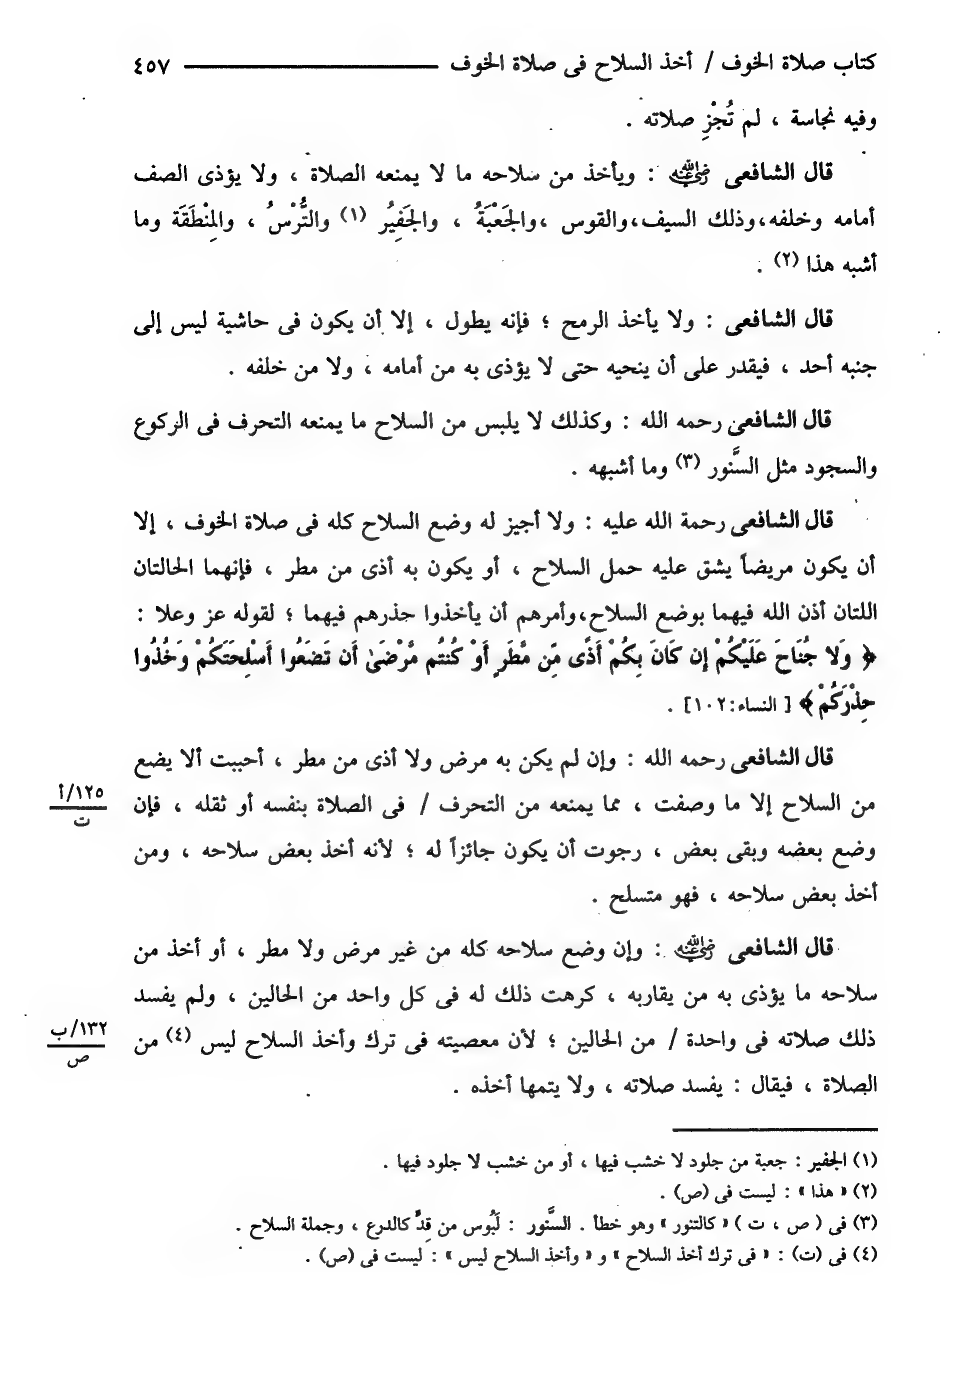 كتاب صلاة الخوف / أخذ السلاح فى صلاة الخوف ٤٥٧
وفيه نجاسة ، لم تُجْزِ صلاته .
قال الشافعى رضي الله عنه : ويأخذ من سلاحه ما لا يمنعه الصلاة ، ولا يؤذى الصف
أمامه وخلفه،وذلك السيف،والقوس ،والجَعْبَةُ ، والجَفِيُر (١) والتُّرْسُ ، والمِنْطَقَة وما
أشبه هذا (٢) .
قال الشافعى : ولا يأخذ الرمح ؛ فإنه يطول ، إلا أن يكون فى حاشية ليس إلى
جنبه أحد ، فيقدر على أن ينحيه حتى لا يؤذى به من أمامه ، ولا من خلفه .
قال الشافعى رحمه الله : وكذلك لا يلبس من السلاح ما يمنعه التحرف فى الركوع
والسجود مثل السَّنور (٣) وما أشبهه .
قال الشافعى رحمة الله عليه : ولا أجيز له وضع السلاح كله فى صلاة الخوف ، إلا
أن يكون مريضاً يشق عليه حمل السلاح ، أو يكون به أذى من مطر ، فإنهما الحالتان
اللتان أذن الله فيهما بوضع السلاح،وأمرهم أن يأخذوا حذرهم فيهما ؛ لقوله عز وعلا :
﴿ وَلا جُنَاحَ عَلَيْكُمْ إِن كَانَ بِكُمْ أَذًى مِّن مَّطَرٍ أَوْ كُنتُم مَّرْضَىٰ أَن تَضَعُوا أَسْلِحَتَكُمْ وَخُذُوا
حِذْرَكُمْ ﴾ [ النساء:١٠٢] .
قال الشافعى رحمه الله : وإن لم يكن به مرض ولا أذى من مطر ، أحببت ألا يضع
من السلاح إلا ما وصفت ، مما يمنعه من التحرف / فى الصلاة بنفسه أو ثقله ، فإن
١٢٥/أ
ت
وضع بعضه وبقى بعض ، رجوت أن يكون جائزاً له ؛ لأنه أخذ بعض سلاحه ، ومن
أخذ بعض سلاحه ، فهو متسلح .
قال الشافعى رضي الله عنه : وإن وضع سلاحه كله من غير مرض ولا مطر ، أو أخذ من
سلاحه ما يؤذى به من يقاربه ، كرهت ذلك له فى كل واحد من الحالين ، ولم يفسد
ذلك صلاته فى واحدة / من الحالين ؛ لأن معصيته فى ترك وأخذ السلاح ليس (٤) من
١٣٢/ب
ص
الصلاة ، فيقال : يفسد صلاته ، ولا يتمها أخذه .
(١) الجفير : جعبة من جلود لا خشب فيها ، أو من خشب لا جلود فيها .
(٢) « هذا » : ليست فى (ص) .
(٣) فى ( ص ، ت ) « كالتنور » وهو خطأ . السَّنور : لَبُوس من قِدٍّ كالدرع ، وجملة السلاح .
(٤) فى (ت) : « فى ترك أخذ السلاح » و « وأخذ السلاح ليس » : ليست فى (ص) .